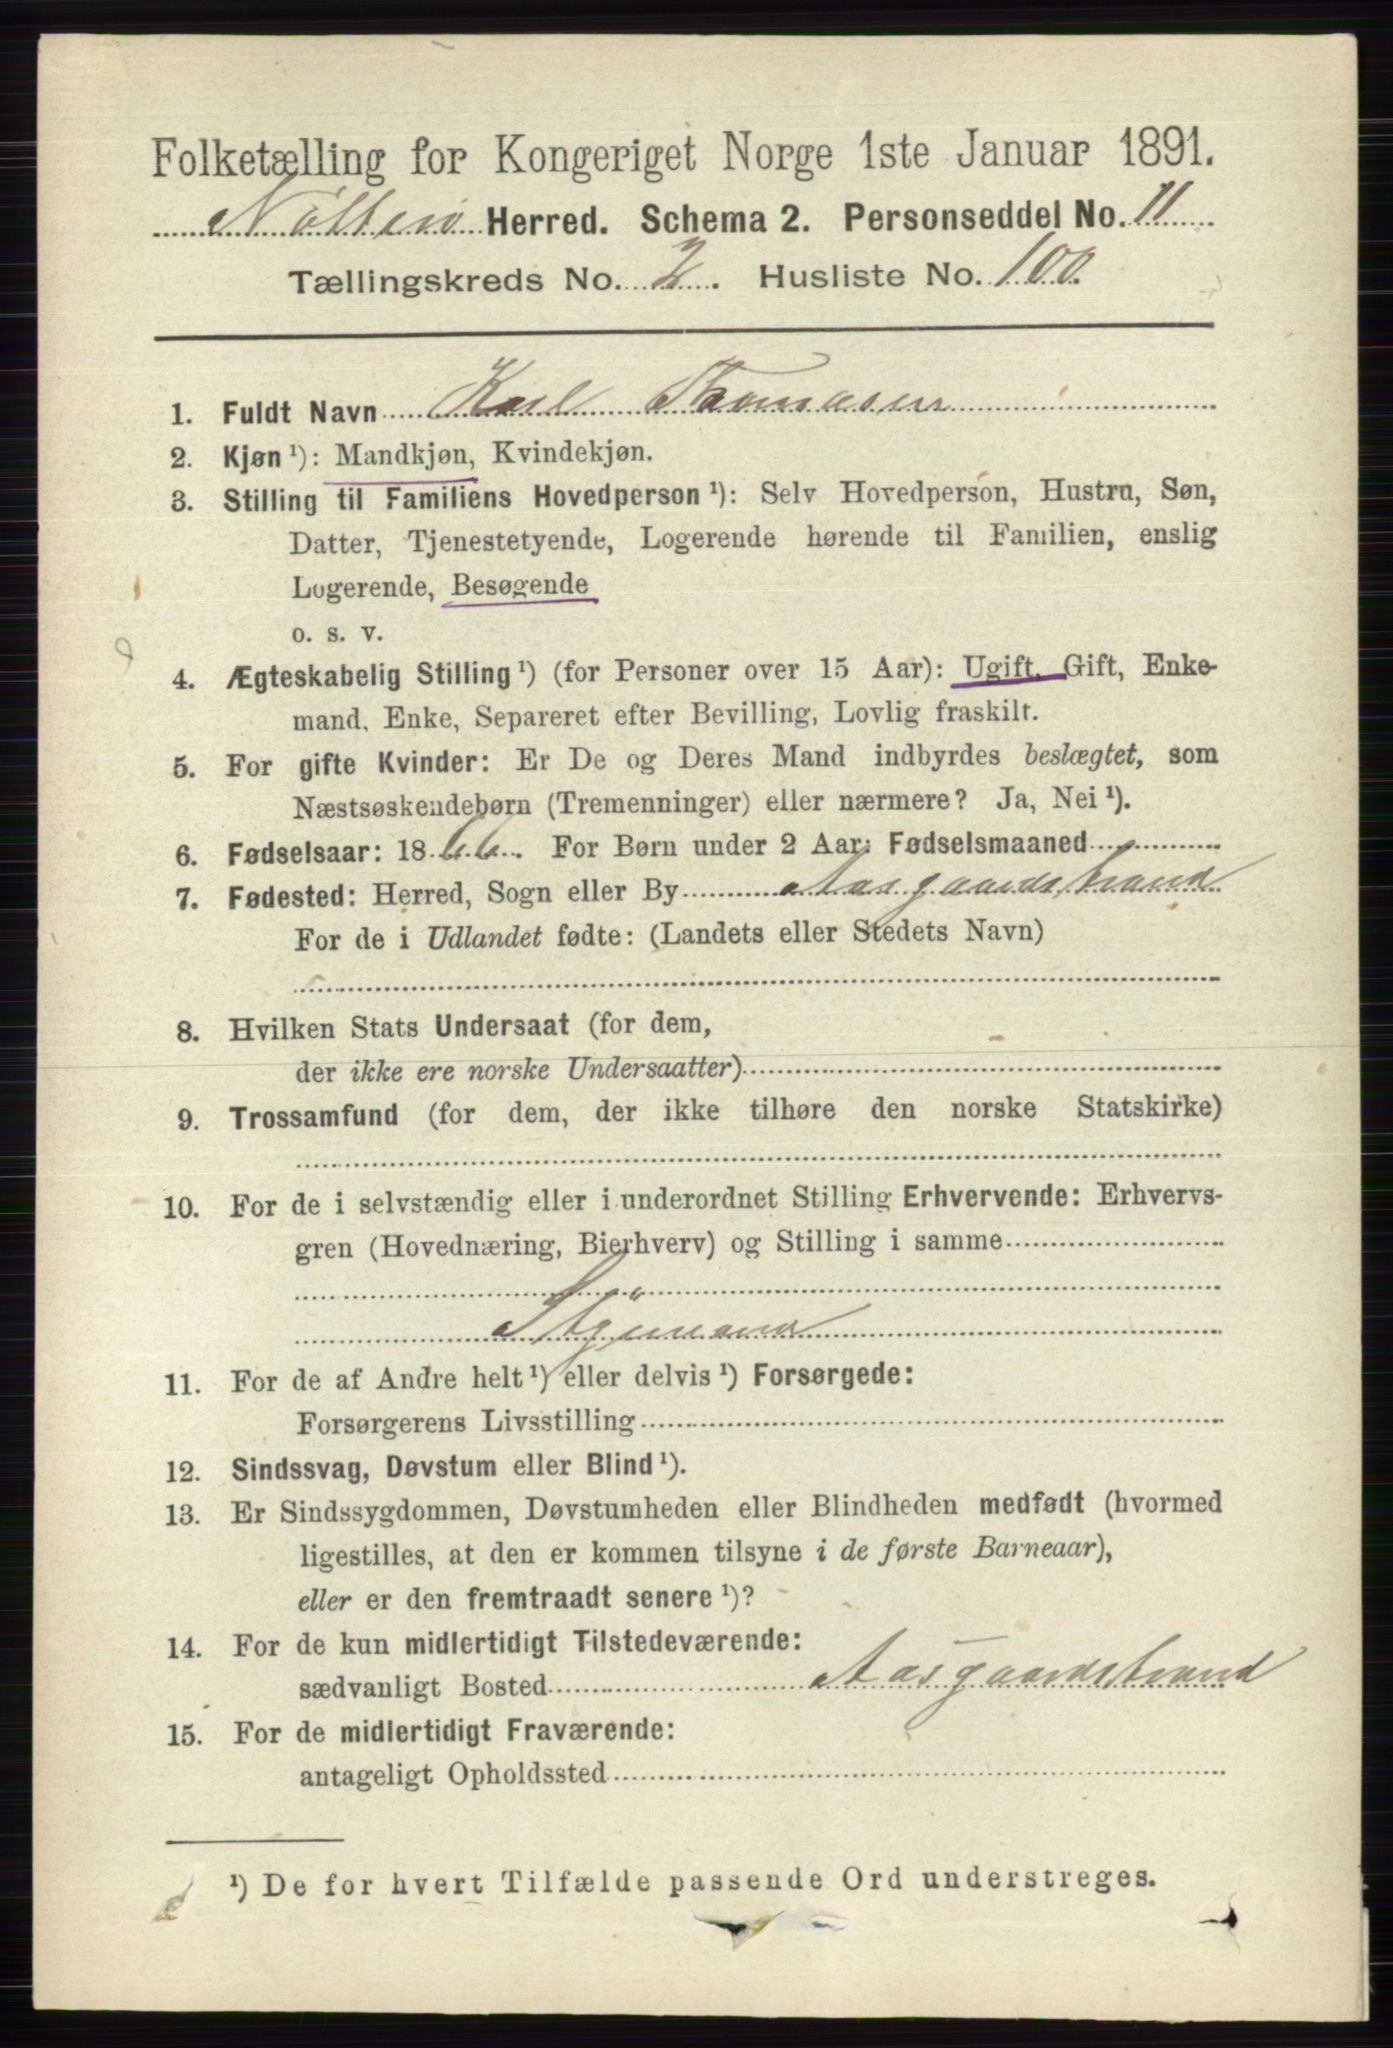 Folketælling for Kongeriget Norge 1ste Januar 1891.
Nøtterø Herred. Schema 2. Personseddel No. 11
Tællingskreds No. 2. Husliste No. 100.
1. Fuldt Navn Karl Thomasen
2. Kjøn ¹): Mandkjøn, Kvindekjøn.
3. Stilling til Familiens Hovedperson ¹): Selv Hovedperson, Hustru, Søn,
Datter, Tjenestetyende, Logerende hørende til Familien, enslig
Logerende, Besøgende
o. s. v.
4. Ægteskabelig Stilling ¹) (for Personer over 15 Aar): Ugift, Gift, Enke-
mand, Enke, Separeret efter Bevilling, Lovlig fraskilt.
5. For gifte Kvinder: Er De og Deres Mand indbyrdes beslægtet, som
Næstsøskendebørn (Tremenninger) eller nærmere? Ja, Nei ¹).
6. Fødselsaar: 1866. For Børn under 2 Aar: Fødselsmaaned
7. Fødested: Herred, Sogn eller By Aasgaardstrand
For de i Udlandet fødte: (Landets eller Stedets Navn)
8. Hvilken Stats Undersaat (for dem,
der ikke ere norske Undersaatter)
9. Trossamfund (for dem, der ikke tilhøre den norske Statskirke)
10. For de i selvstændig eller i underordnet Stilling Erhvervende: Erhvervs-
gren (Hovednæring, Bierhverv) og Stilling i samme
Sjømand
11. For de af Andre helt ¹) eller delvis ¹) Forsørgede:
Forsørgerens Livsstilling
12. Sindssvag, Døvstum eller Blind ¹).
13. Er Sindssygdommen, Døvstumheden eller Blindheden medfødt (hvormed
ligestilles, at den er kommen tilsyne i de første Barneaar),
eller er den fremtraadt senere ¹)?
14. For de kun midlertidigt Tilstedeværende:
sædvanligt Bosted Aasgaardstrand
15. For de midlertidigt Fraværende:
antageligt Opholdssted
¹) De for hvert Tilfælde passende Ord understreges.